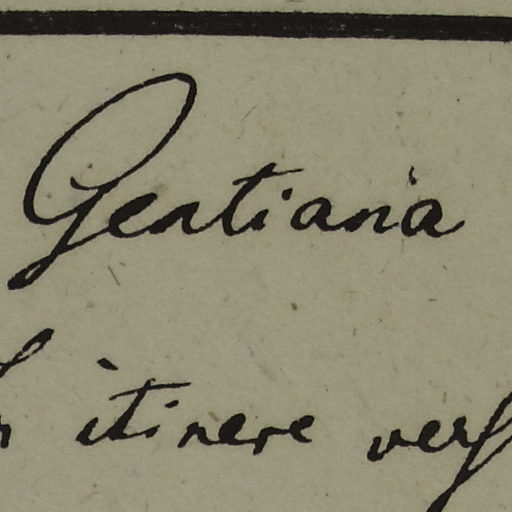 Gentiana
in itinere vers